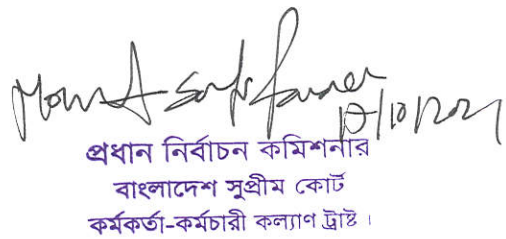 প্রধান নির্বাচন কমিশনার
বাংলাদেশ সুপ্রীম কোর্ট
কর্মকর্তা-কর্মচারী কল্যাণ ট্রাষ্ট।